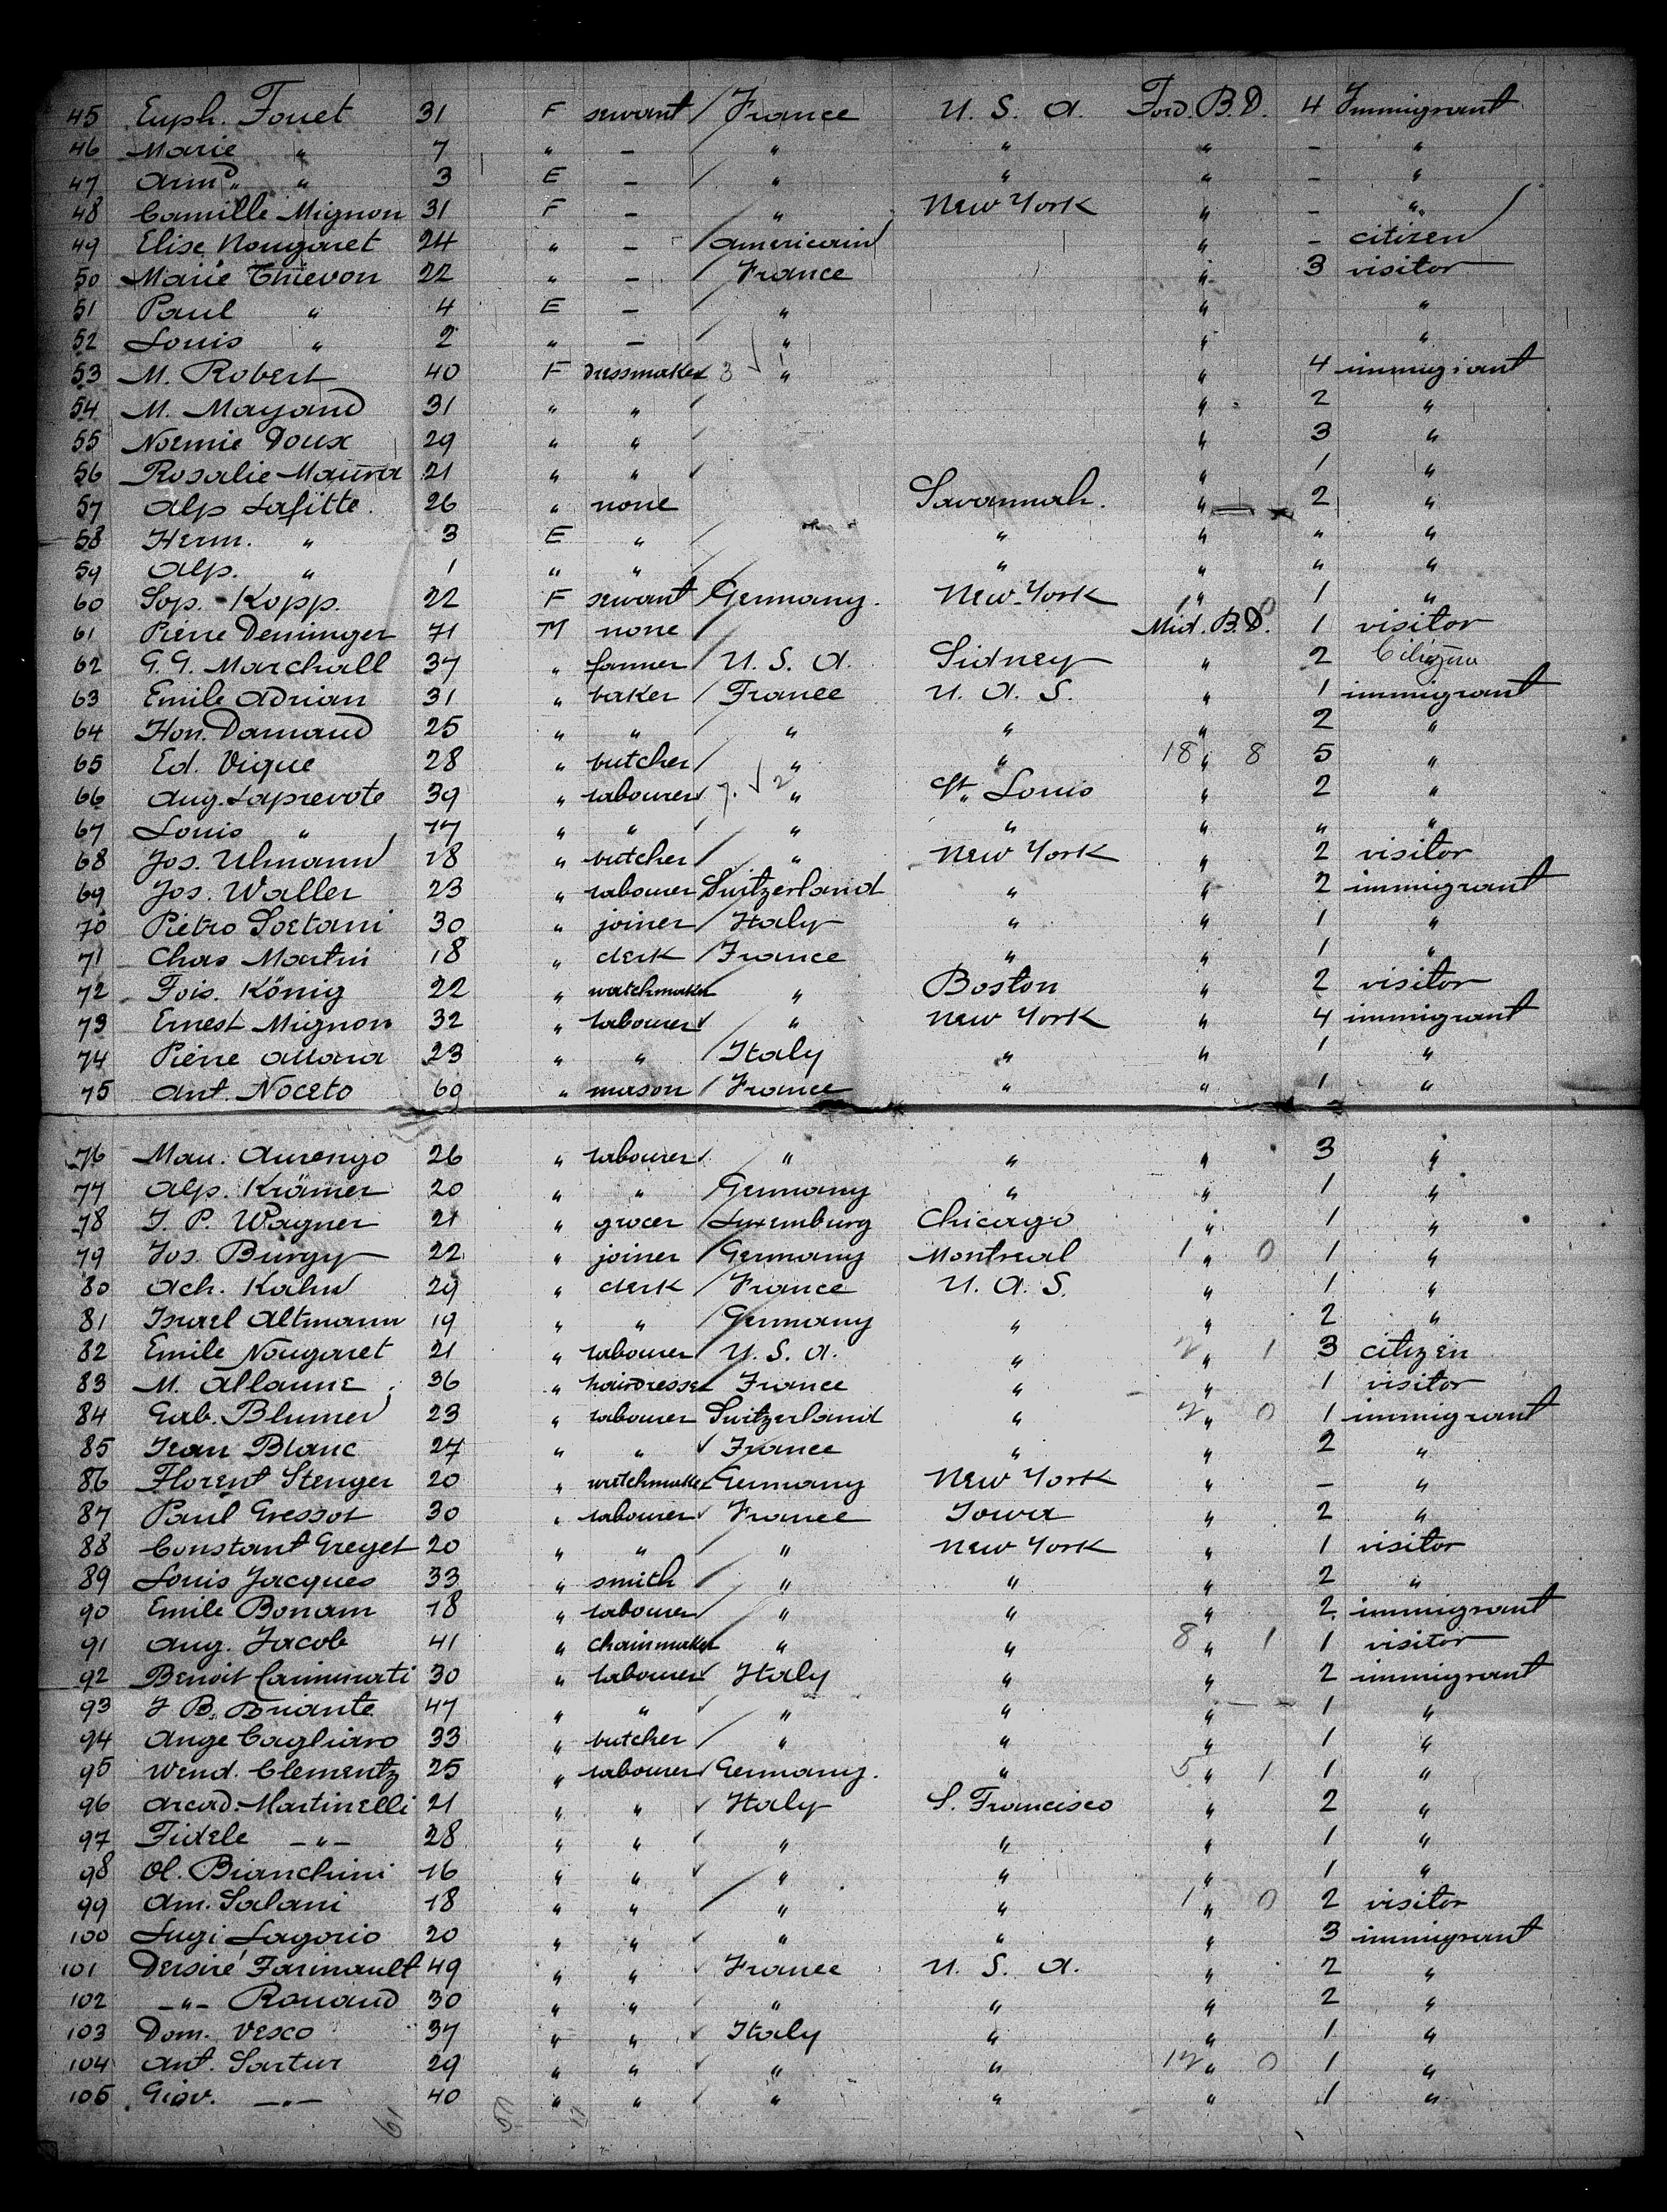 45 Euph. Fouet 31 F servant / France U. S. A. Forw. B.D. 4 Immigrant
46 Marie " 7 " - " " " - "
47 Arm.d " " 3 E - / " " " - "
48 Camille Mignon 31 F - / " New York " - "
49 Elise Nougaret 24 " - / americain " - citizen
50 Marie Thievon 22 " - / France " 3 visitor
51 Paul " 4 E - / " " "
52 Louis " 2 " - / " " "
53 M. Robert 40 F dressmaker 3 √ " " 4 immigrant
54 M. Mayaud 31 " " / " 2 "
55 Noemie Doux 29 " " / " 3 "
56 Rosalie Maura 21 " " √ " 1 "
57 Alp Lafitte. 26 " none Savannah. " 2 "
58 Herm. " 3 E " / " " " "
59 Alp. " 1 " " / " " " "
60 Sop. Kopp. 22 F servant / Germany. New-York " 1 "
61 Pierre Deminger 71 M none / Mid. B.D. 1 visitor
62 G. G. Marchall 37 " farmer / U. S. A. Sidney " 2 Citizen
63 Emile Adrian 31 " baker / France U. A. S. " 1 immigrant
64 Hon. Damaud 25 " " / " " " 2 "
65 Ed. Vique 28 " butcher / " " 18 " 8 5 "
66 Aug. Laprevote 39 " labourer √ 7. √ 2 " St. Louis " 2 "
67 Louis " 17 " " √ " " " " "
68 Jos. Ulmann 18 " butcher / " New York " 2 visitor
69 Jos. Waller 23 " labourer Switzerland " " 2 immigrant
70 Pietro Soetani 30 " joiner / Italy " " 1 "
71 Chas Martin 18 " clerk / France " " 1 "
72 Fois. König 22 " watchmaker " Boston " 2 visitor
73 Ernest Mignon 32 " labourer √ " New York " 4 immigrant
74 Pierre Allara 23 " " / Italy " " 1 "
75 Ant. Noceto 60 " mason / France " " 1 "
76 Mau. Aurengo 26 " labourer √ " " " 3 "
77 Alp. Krämer 20 " " / Germany " " 1 "
78 J. P. Wagner 21 " grocer / Luxemburg Chicago " 1 "
79 Jos. Burgy 22 " joiner / Germany Montreal 1 " 0 1 "
80 Ach. Kahn 29 " clerk / France U. A. S. " 1 "
81 Israel Altmann 19 " " / Germany " " 2 "
82 Emile Nougaret 21 " labourer / U. S. A. " 2 " 1 3 citizen
83 M. Allaune 36 " hairdresser France " " 1 visitor
84 Gab. Blumer 23 " labourer Switzerland " 2 " 0 1 immigrant
85 Jean Blanc 27 " " √ France " " 2 "
86 Florent Stenger 20 " watchmaker Germany New York " - "
87 Paul Gressot 30 " labourer √ France Iowa " 2 "
88 Constant Greyet 20 " " / " New York " 1 visitor
89 Louis Jacques 33 " smith / " " " 2 "
90 Emile Bonam 18 " labourer / " " " 2 immigrant
91 Aug. Jacob 41 " chainmaker " " 8 " 1 1 visitor
92 Benoit Camminati 30 " labourer √ Italy " " 2 immigrant
93 J B. Briante 47 " " √ " " " 1 "
94 Ange Cagliaro 33 " butcher / " " " 1 "
95 Wend. Clementz 25 " labourer √ Germany. " 5 " 1 1 "
96 Arcad. Martinelli 21 " " √ Italy S. Francisco " 2 "
97 Fidele -"- 28 " " √ " " " 1 "
98 Ol. Bianchini 16 " " √ " " " 1 "
99 Am. Salani 18 " " / " " 1 " 0 2 visitor
100 Lugi Lagorio 20 " " √ " " " 3 immigrant
101 Desiré Farinault 49 " " √ France U. S. A. " 2 "
102 -"- Rouaud 30 " " / " " " 2 "
103 Dom. Vesco 37 " " √ Italy " " 1 "
104 Ant. Sartur 29 " " √ " " 12 " 0 1 "
105 Giov. -"- 40 " " / " " " 1 "